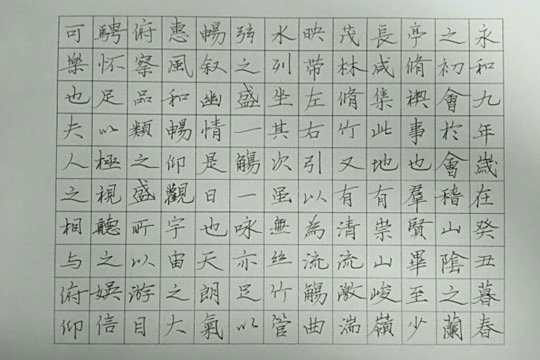 永和九年歲在癸丑暮春
之初會於會稽山陰之蘭
亭脩禊事也羣賢畢至少
長咸集此地有崇山峻嶺
茂林脩竹又有清流激湍
映帶左右引以為流觴曲
水列坐其次虽無絲竹管
弦之盛一觴一咏亦足以
暢叙幽情是日也天朗氣
惠風和暢仰觀宇宙之大
俯察品類之盛所以游目
騁懷足以極視聽之娱信
可樂也夫人之相与俯仰